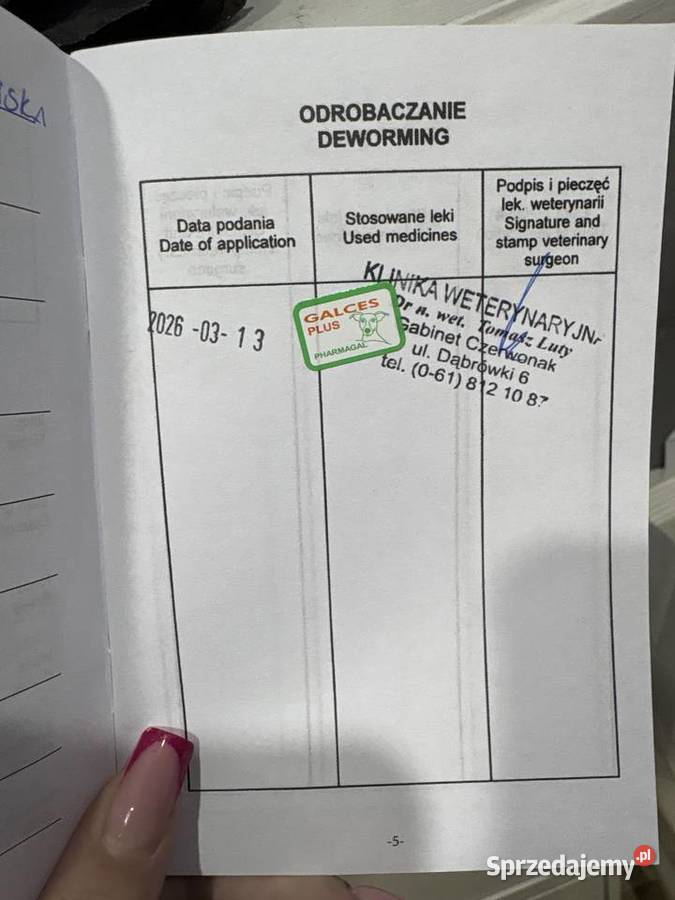 ODROBACZANIE
DEWORMING
Data podania
Date of application
Stosowane leki
Used medicines
Podpis i pieczęć
lek. weterynarii
Signature and
stamp veterinary
surgeon
2026 -03- 13
GALCES
PLUS
PHARMAGAL
KLINIKA WETERYNARYJNA
Dr n. wet. Tomasz Luty
Gabinet Czerwonak
ul. Dąbrówki 6
tel. (0-61) 812 10 87
-5-
Sprzedajemy.pl